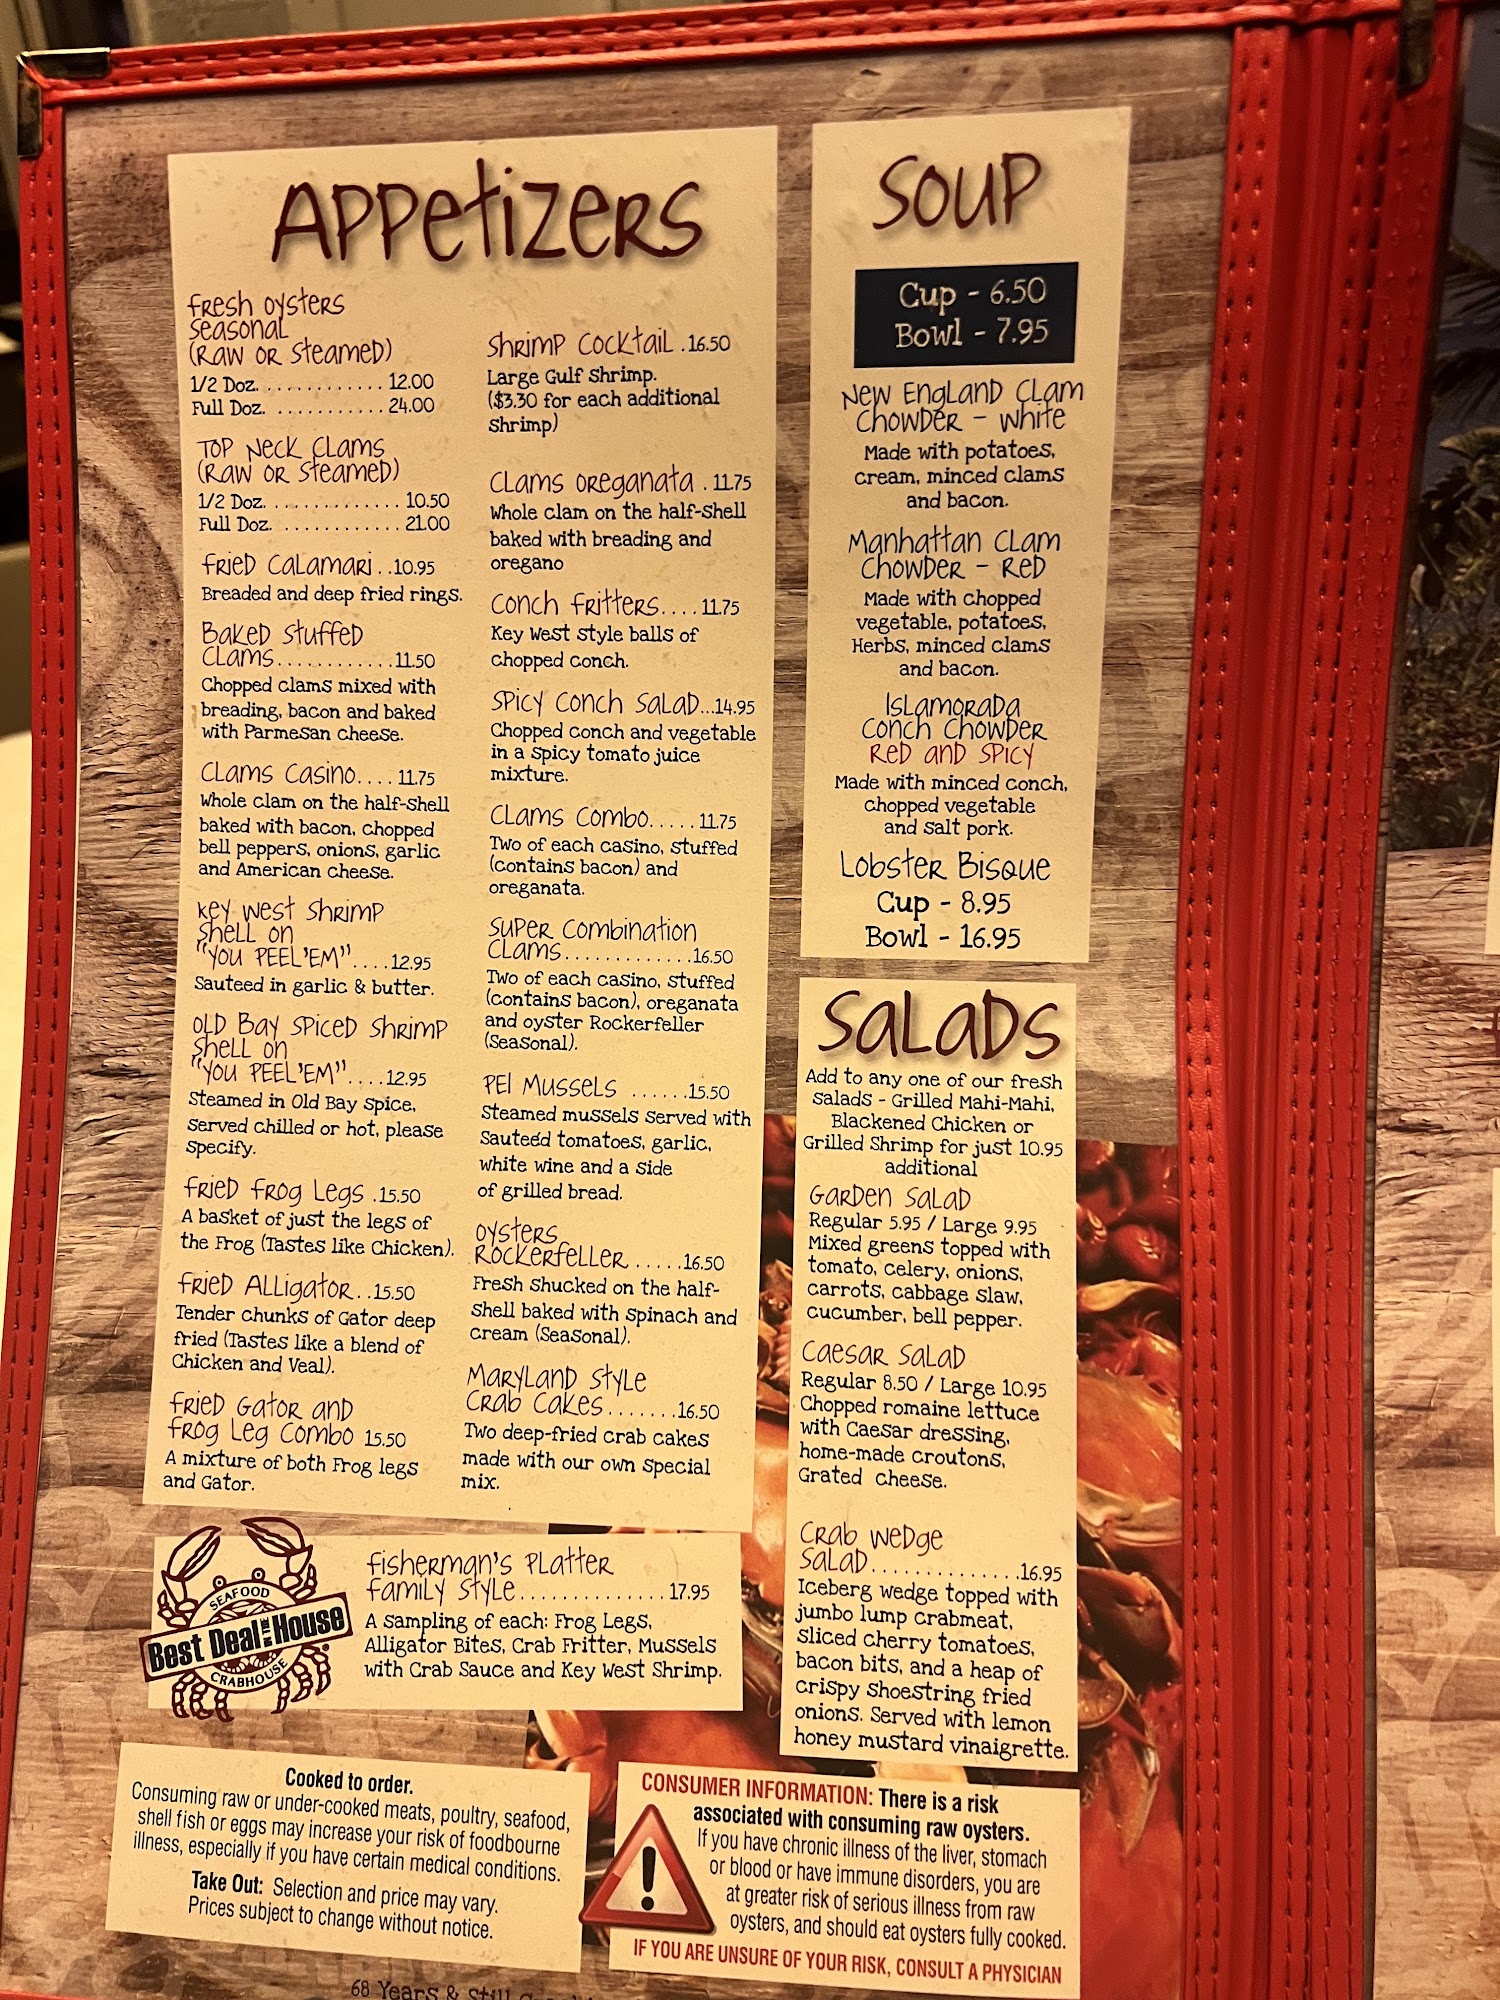 Appetizers
Fresh Oysters
Seasonal
(Raw or Steamed)
1/2 Doz. . . . . . . . . . . . . 12.00
Full Doz. . . . . . . . . . . . 24.00
Top Neck Clams
(Raw or Steamed)
1/2 Doz. . . . . . . . . . . . . . 10.50
Full Doz. . . . . . . . . . . . . 21.00
Fried Calamari . . 10.95
Breaded and deep fried rings.
Baked Stuffed
Clams. . . . . . . . . . . . 11.50
Chopped clams mixed with
breading, bacon and baked
with Parmesan cheese.
Clams Casino. . . . 11.75
Whole clam on the half-shell
baked with bacon, chopped
bell peppers, onions, garlic
and American cheese.
Key West Shrimp
Shell on
"You PEEL'EM". . . . 12.95
Sauteed in garlic & butter.
Old Bay Spiced Shrimp
Shell on
"You PEEL'EM". . . . 12.95
Steamed in Old Bay spice,
served chilled or hot, please
specify.
Fried Frog Legs . 15.50
A basket of just the legs of
the Frog (Tastes like Chicken).
Fried Alligator. . 15.50
Tender chunks of Gator deep
fried (Tastes like a blend of
Chicken and Veal).
Fried Gator and
Frog Leg Combo 15.50
A mixture of both Frog legs
and Gator.
Shrimp Cocktail . 16.50
Large Gulf Shrimp.
($3.30 for each additional
shrimp)
Clams Oreganata . 11.75
Whole clam on the half-shell
baked with breading and
oregano
Conch Fritters. . . . 11.75
Key West style balls of
chopped conch.
Spicy Conch Salad...14.95
Chopped conch and vegetable
in a spicy tomato juice
mixture.
Clams Combo. . . . . 11.75
Two of each casino, stuffed
(contains bacon) and
oreganata.
Super Combination
Clams. . . . . . . . . . . . . 16.50
Two of each casino, stuffed
(contains bacon), oreganata
and oyster Rockerfeller
(Seasonal).
PEI Mussels . . . . . . 15.50
Steamed mussels served with
Sauteéd tomatoes, garlic,
white wine and a side
of grilled bread.
Oysters
Rockerfeller . . . . . 16.50
Fresh shucked on the half-
shell baked with spinach and
cream (Seasonal).
Maryland Style
Crab Cakes. . . . . . . 16.50
Two deep-fried crab cakes
made with our own special
mix.
SEAFOOD
Best Deal THE House
CRABHOUSE
Fisherman's Platter
Family Style. . . . . . . . . . . . . . . 17.95
A sampling of each: Frog Legs,
Alligator Bites, Crab Fritter, Mussels
with Crab Sauce and Key West Shrimp.
Soup
Cup - 6.50
Bowl - 7.95
New England Clam
Chowder - White
Made with potatoes,
cream, minced clams
and bacon.
Manhattan Clam
Chowder - Red
Made with chopped
vegetable, potatoes,
Herbs, minced clams
and bacon.
Islamorada
Conch Chowder
Red and Spicy
Made with minced conch,
chopped vegetable
and salt pork.
Lobster Bisque
Cup - 8.95
Bowl - 16.95
Salads
Add to any one of our fresh
salads - Grilled Mahi-Mahi,
Blackened Chicken or
Grilled Shrimp for just 10.95
additional
Garden Salad
Regular 5.95 / Large 9.95
Mixed greens topped with
tomato, celery, onions,
carrots, cabbage slaw,
cucumber, bell pepper.
Caesar Salad
Regular 8.50 / Large 10.95
Chopped romaine lettuce
with Caesar dressing,
home-made croutons,
Grated cheese.
Crab Wedge
Salad. . . . . . . . . . . . . . . 16.95
Iceberg wedge topped with
jumbo lump crabmeat,
sliced cherry tomatoes,
bacon bits, and a heap of
crispy shoestring fried
onions. Served with lemon
honey mustard vinaigrette.
Cooked to order.
Consuming raw or under-cooked meats, poultry, seafood,
shell fish or eggs may increase your risk of foodbourne
illness, especially if you have certain medical conditions.
Take Out: Selection and price may vary.
Prices subject to change without notice.
CONSUMER INFORMATION: There is a risk
associated with consuming raw oysters.
If you have chronic illness of the liver, stomach
or blood or have immune disorders, you are
at greater risk of serious illness from raw
oysters, and should eat oysters fully cooked.
IF YOU ARE UNSURE OF YOUR RISK, CONSULT A PHYSICIAN
68 Years & Still